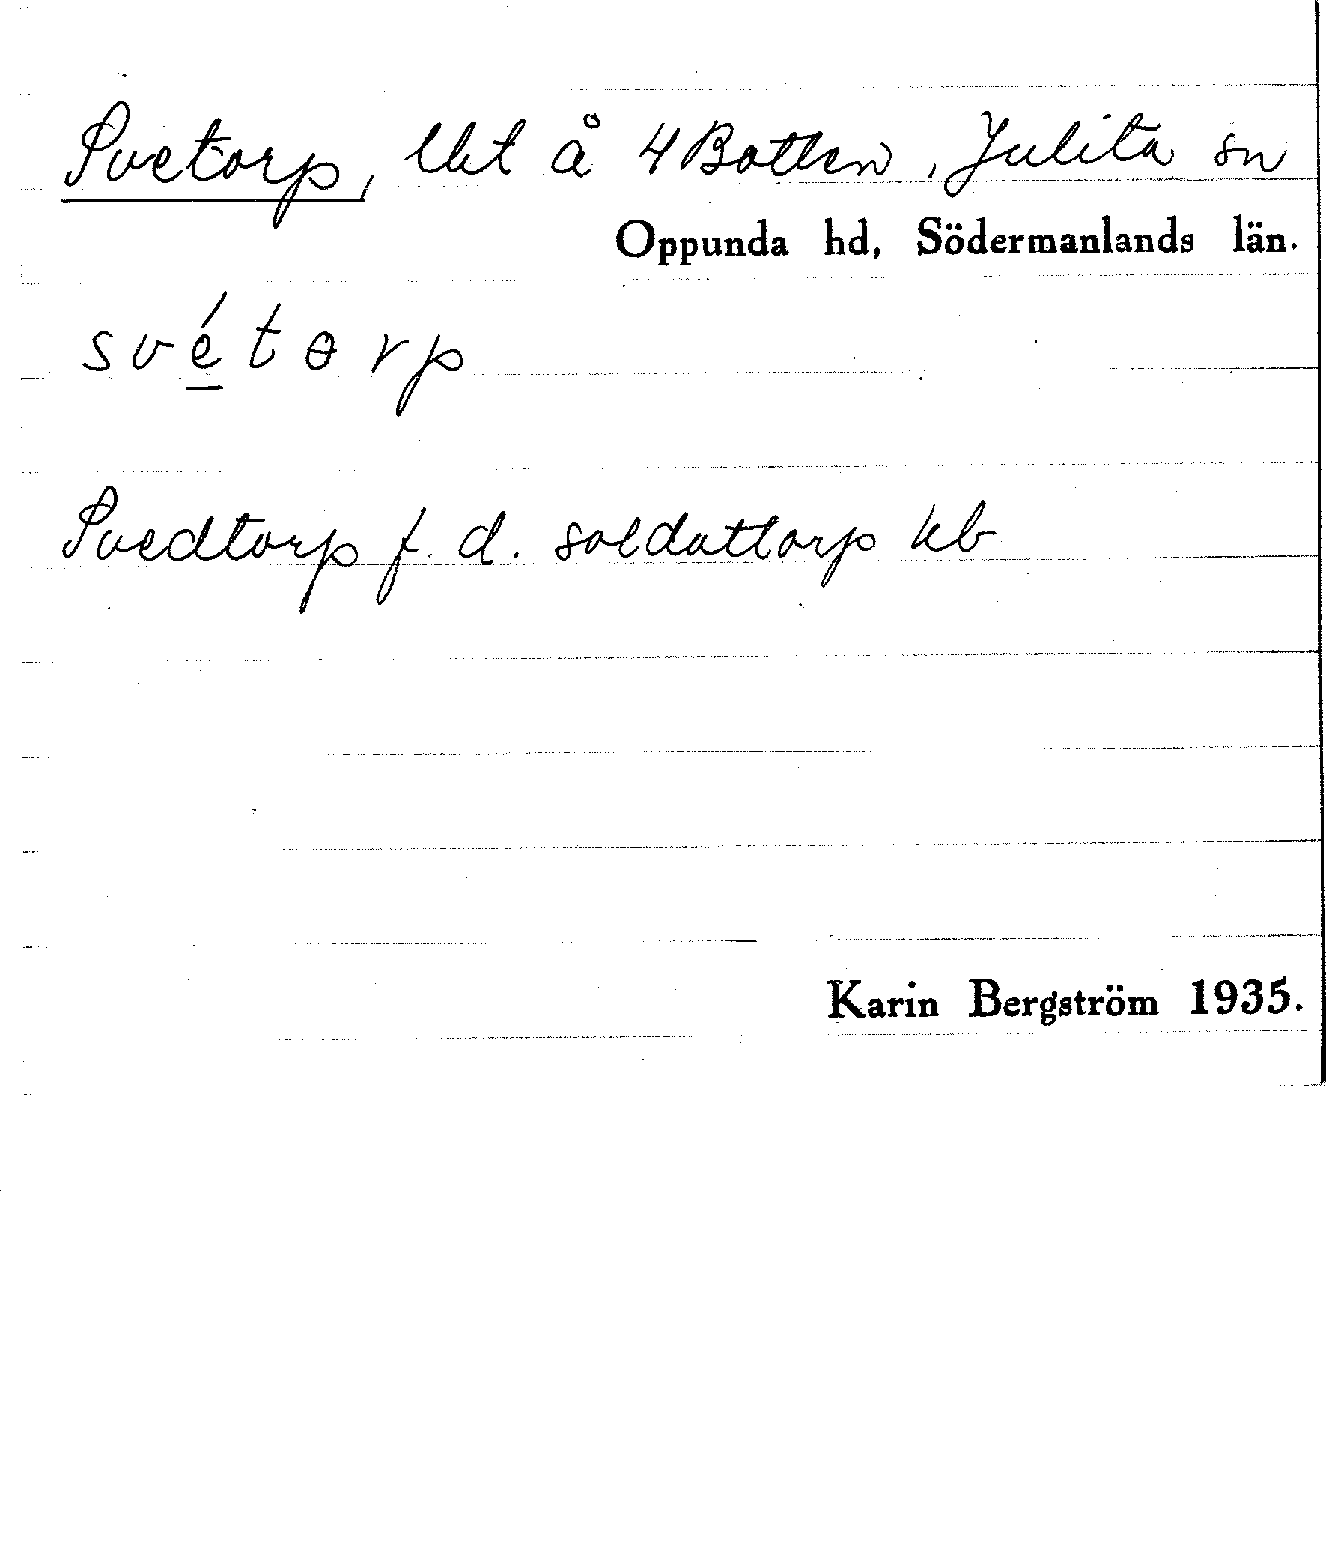 Svetorp, lht å 4 Botten, Julita sn
Oppunda hd, Södermanlands län.
své̲tɵrp
Svedtorp f. d. soldattorp kb
Karin Bergström 1935.